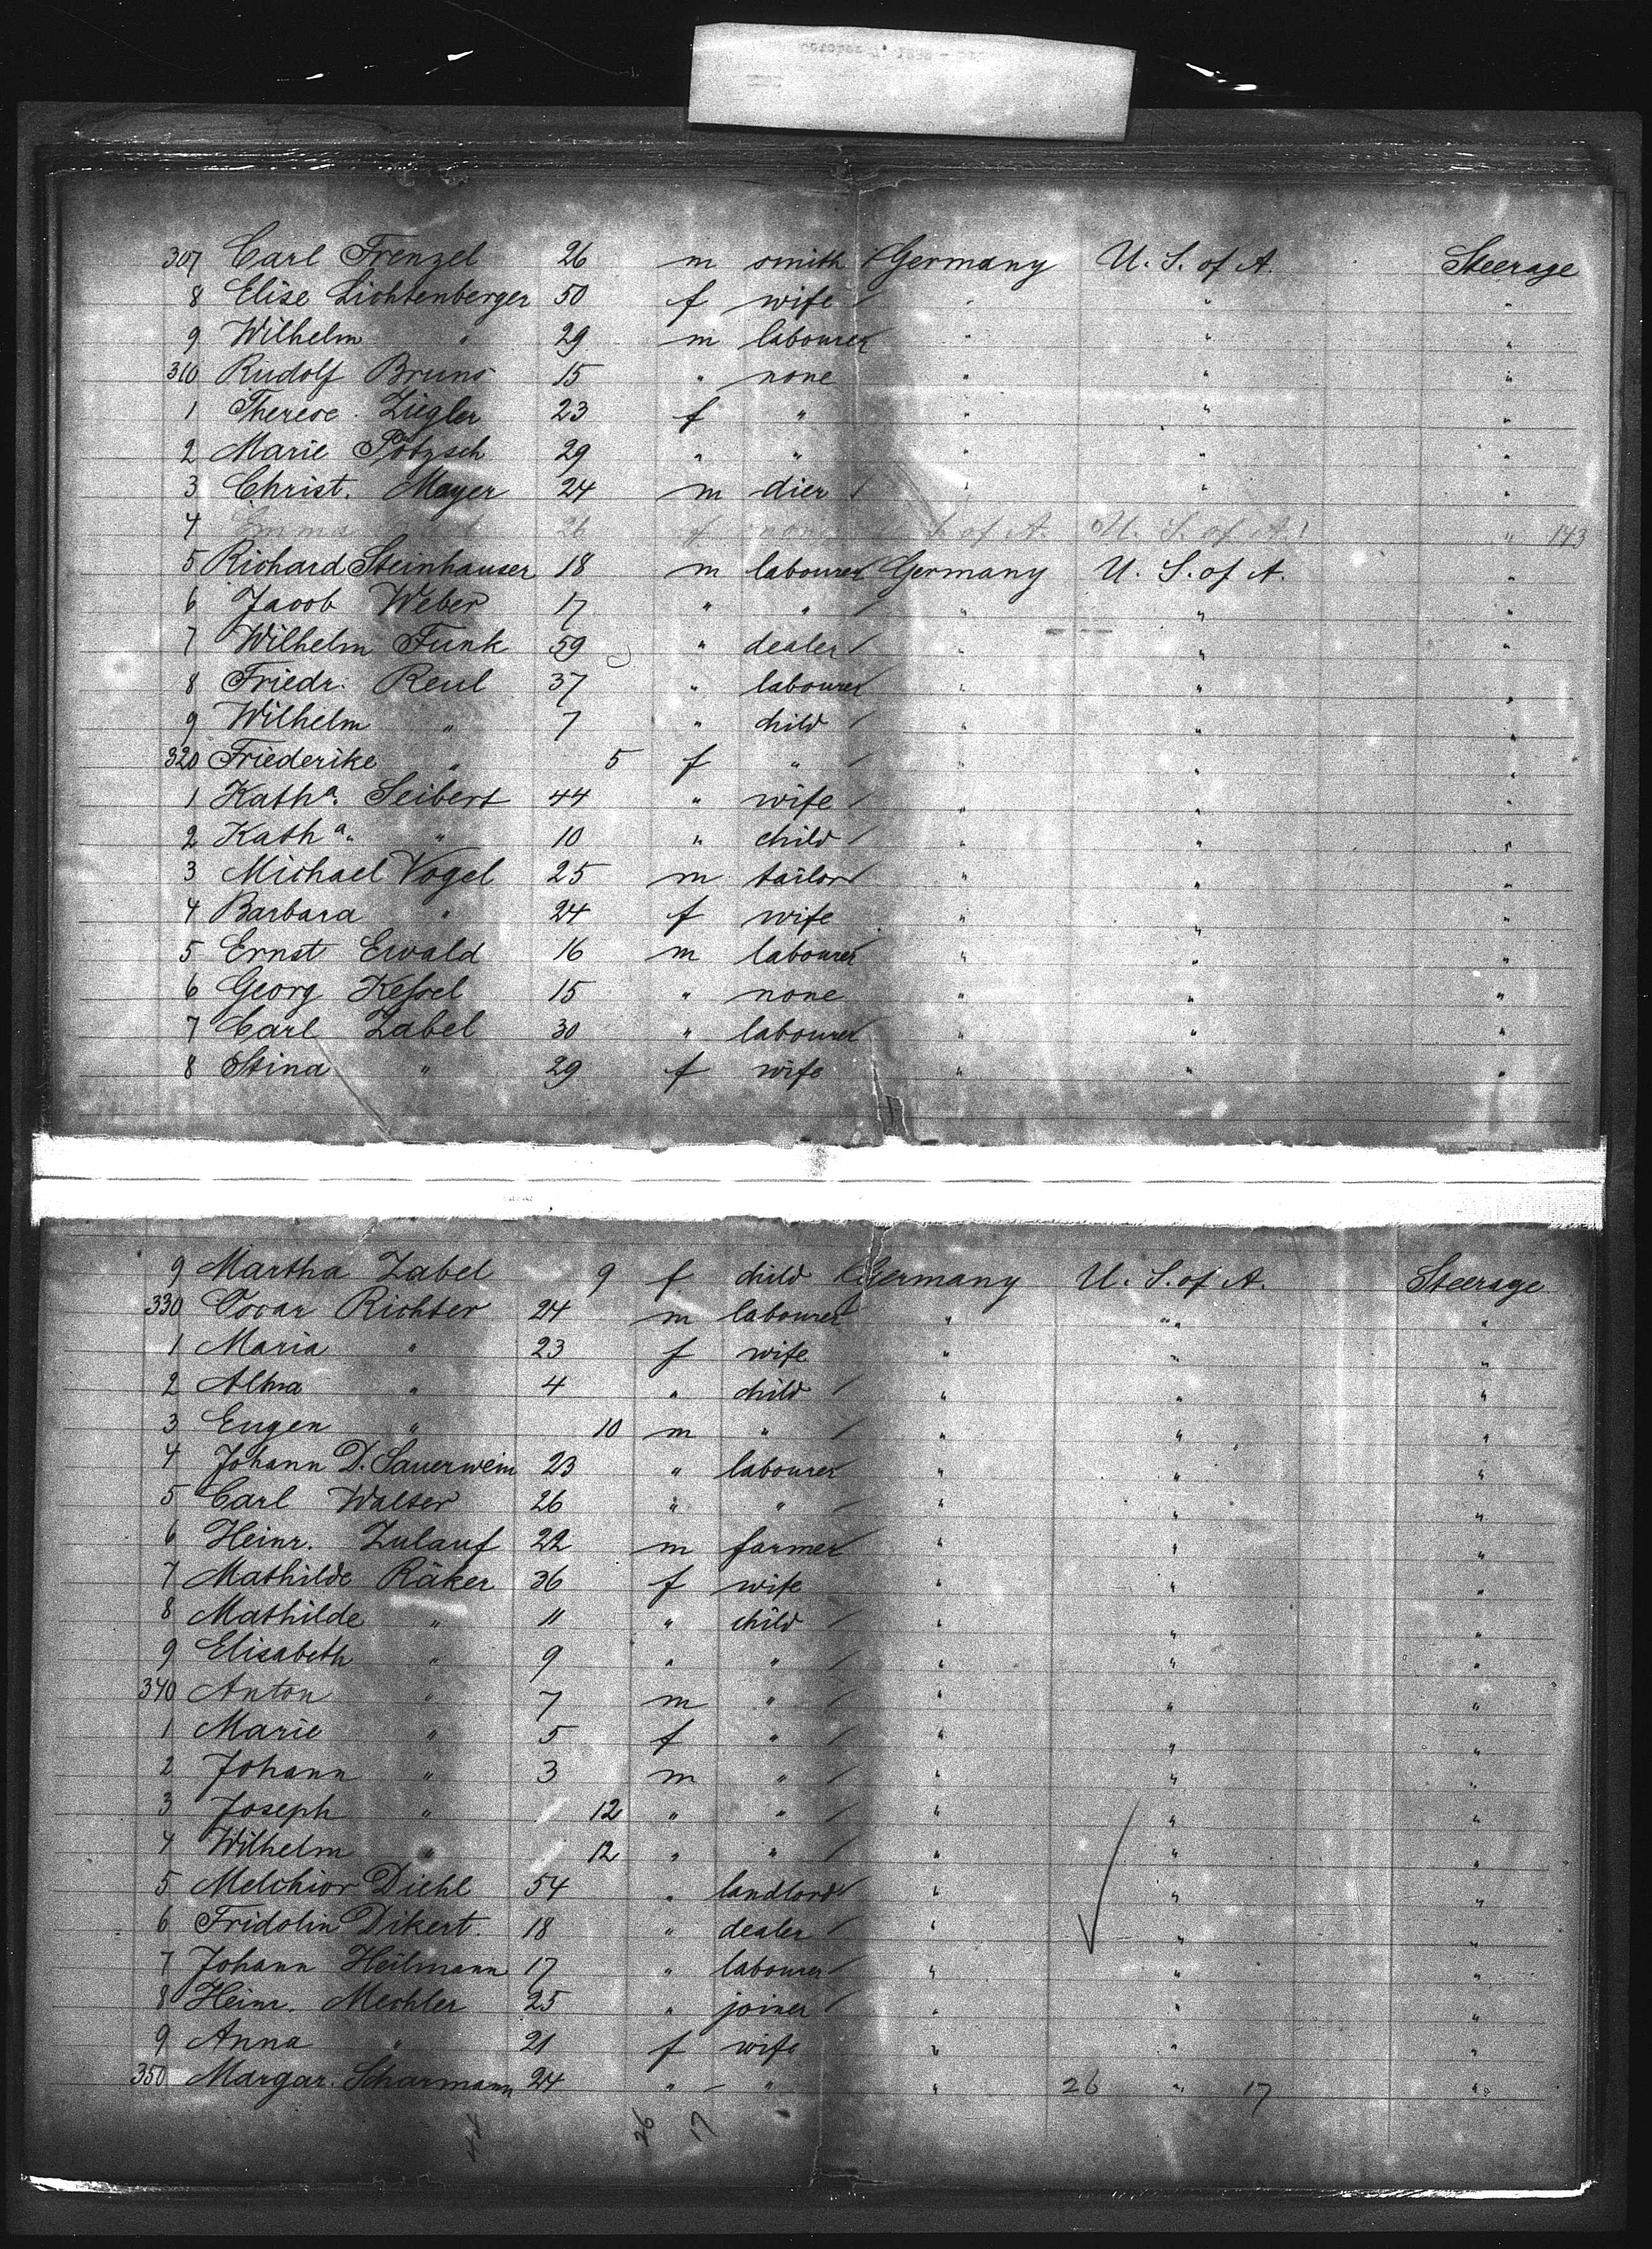 307 Carl Frenzel 26 m smith Germany U. S. of A. Steerage
8 Elise Lichtenberger 50 f wife " " "
9 Wilhelm " 29 m labourer " " "
310 Rudolf Bruns 15 " none " " "
1 Therese Ziegler 23 f " " " "
2 Marie Pötzsch 29 " " " " "
3 Christ. Mayer 24 m dier " " "
4 Emma 26 f none S. of A. U. S. of A. " 143
5 Richard Steinhauser 18 m labourer Germany U. S. of A. "
6 Jacob Weber 17 " " " " "
7 Wilhelm Funk 59 " dealer " " "
8 Friedr. Reul 37 " labourer " " "
9 Wilhelm " 7 " child " " "
320 Friederike " 5 f " " " "
1 Katha. Seibert 44 " wife " " "
2 Katha. " 10 " child " " "
3 Michael Vogel 25 m tailor " " "
4 Barbara " 24 f wife " " "
5 Ernst Ewald 16 m labourer " " "
6 Georg Kessel 15 " none " " "
7 Carl Zabel 30 " labourer " " "
8 Stina " 29 f wife " " "
9 Martha Zabel 9 f child Germany U. S. of A. Steerage
330 Oscar Richter 24 m labourer " " "
1 Maria " 23 f wife " " "
2 Alma " 4 " child " " "
3 Eugen " 10 m " " " "
4 Johann D. Sauerwein 23 " labourer " " "
5 Carl Walter 26 " " " " "
6 Heinr. Zulauf 22 m farmer " " "
7 Mathilde Räker 36 f wife " " "
8 Mathilde " 11 " child " " "
9 Elisabeth " 9 " " " " "
340 Anton " 7 m " " " "
1 Marie " 5 f " " " "
2 Johann " 3 m " " " "
3 Joseph " 12 " " " " "
4 Wilhelm " 12 " " " " "
5 Melchior Diehl 54 " landlord " " "
6 Fridolin Dikert. 18 " dealer " " "
7 Johann Heilmann 17 " labourer " " "
8 Heinr. Mechler 25 " joiner " " "
9 Anna " 21 f wife " " "
350 Margar. Scharmann 24 " " " 26 " 17 "
44 26 17